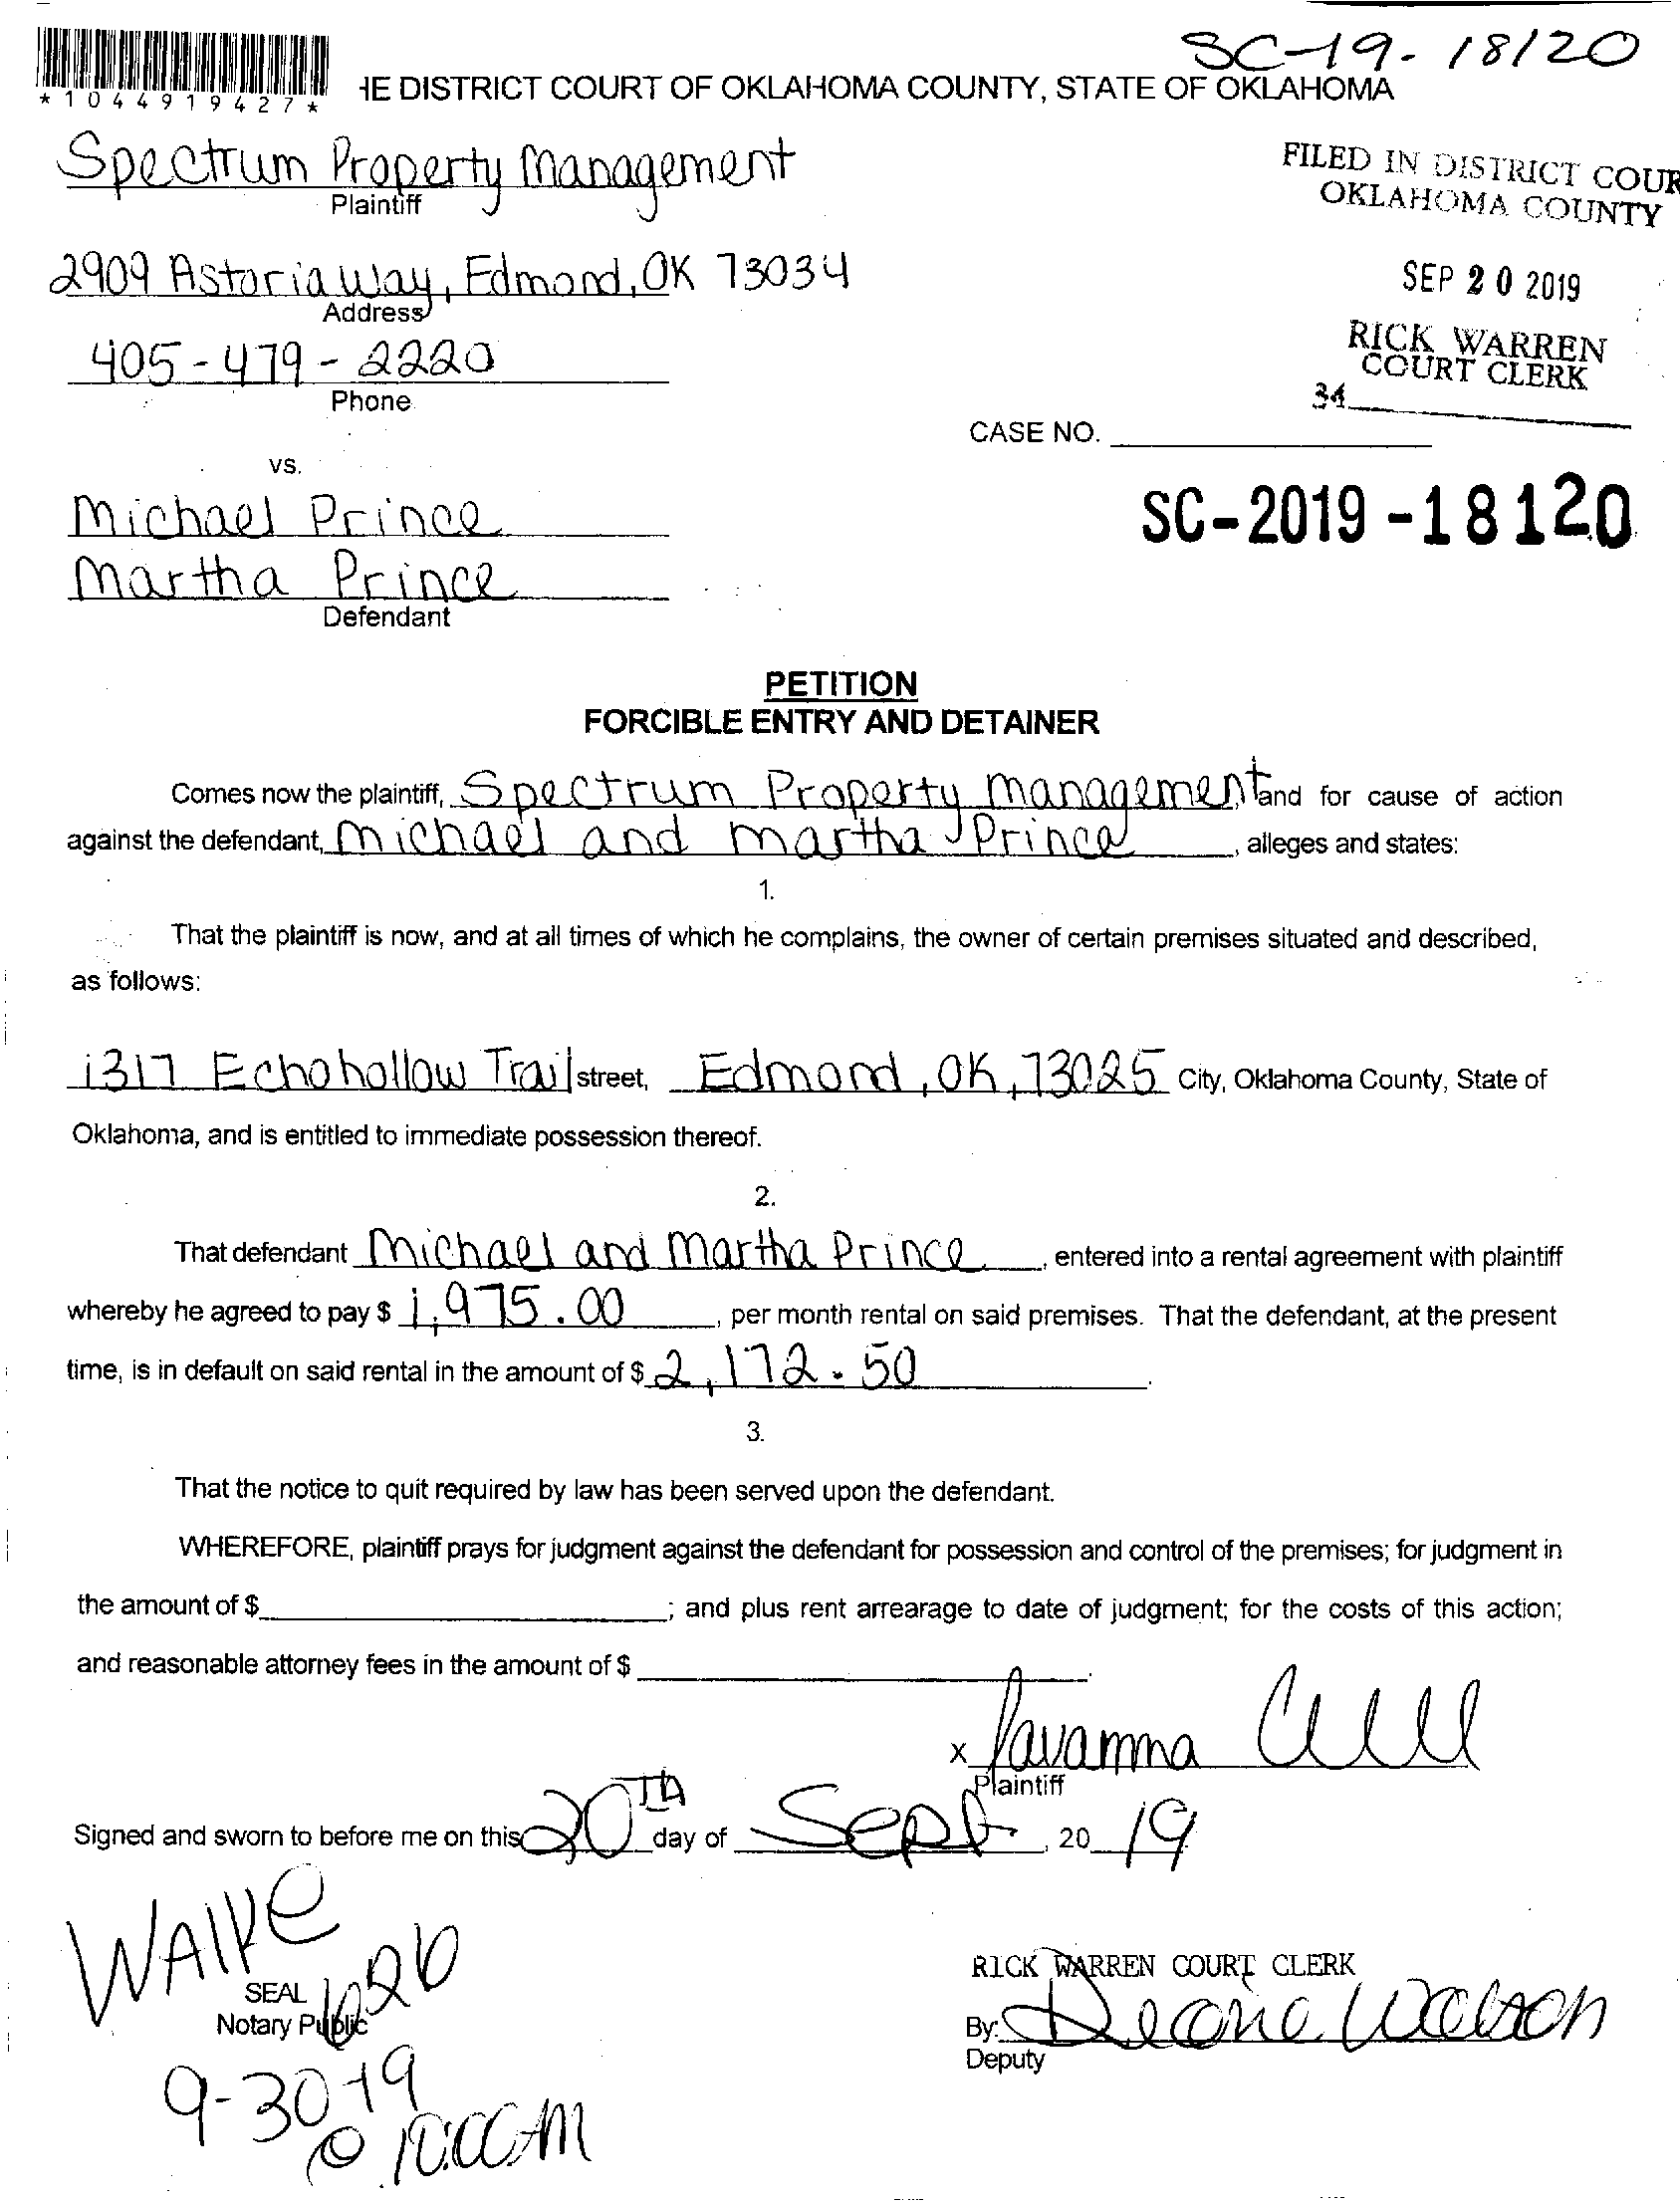 SC-19-18120
*1044919427*
HE DISTRICT COURT OF OKLAHOMA COUNTY, STATE OF OKLAHOMA
Spectrum Property Management
Plaintiff
FILED IN DISTRICT COUR
OKLAHOMA COUNTY
2909 Astoria Way, Edmond, OK 73034
Address
SEP 20 2019
405-479-2220
Phone
RICK WARREN
COURT CLERK
34
CASE NO.
vs.
Michael Prince
SC-2019-18120
Martha Prince
Defendant
PETITION
FORCIBLE ENTRY AND DETAINER
Comes now the plaintiff, Spectrum Property Management and for cause of action
against the defendant, Michael and Martha Prince, alleges and states:
1.
That the plaintiff is now, and at all times of which he complains, the owner of certain premises situated and described,
as follows:
1317 Echohollow Trail street, Edmond, OK, 73025 City, Oklahoma County, State of
Oklahoma, and is entitled to immediate possession thereof.
2.
That defendant Michael and Martha Prince, entered into a rental agreement with plaintiff
whereby he agreed to pay $ 1,975.00, per month rental on said premises. That the defendant, at the present
time, is in default on said rental in the amount of $ 2,172.50.
3.
That the notice to quit required by law has been served upon the defendant.
WHEREFORE, plaintiff prays for judgment against the defendant for possession and control of the premises; for judgment in
the amount of $ ; and plus rent arrearage to date of judgment; for the costs of this action;
and reasonable attorney fees in the amount of $ .
x
Plaintiff
Signed and sworn to before me on this 20TH day of Sept, 2019
SEAL
Notary Public
RICK WARREN COURT CLERK
By:
Deputy
9-30-19
@ 10:00AM